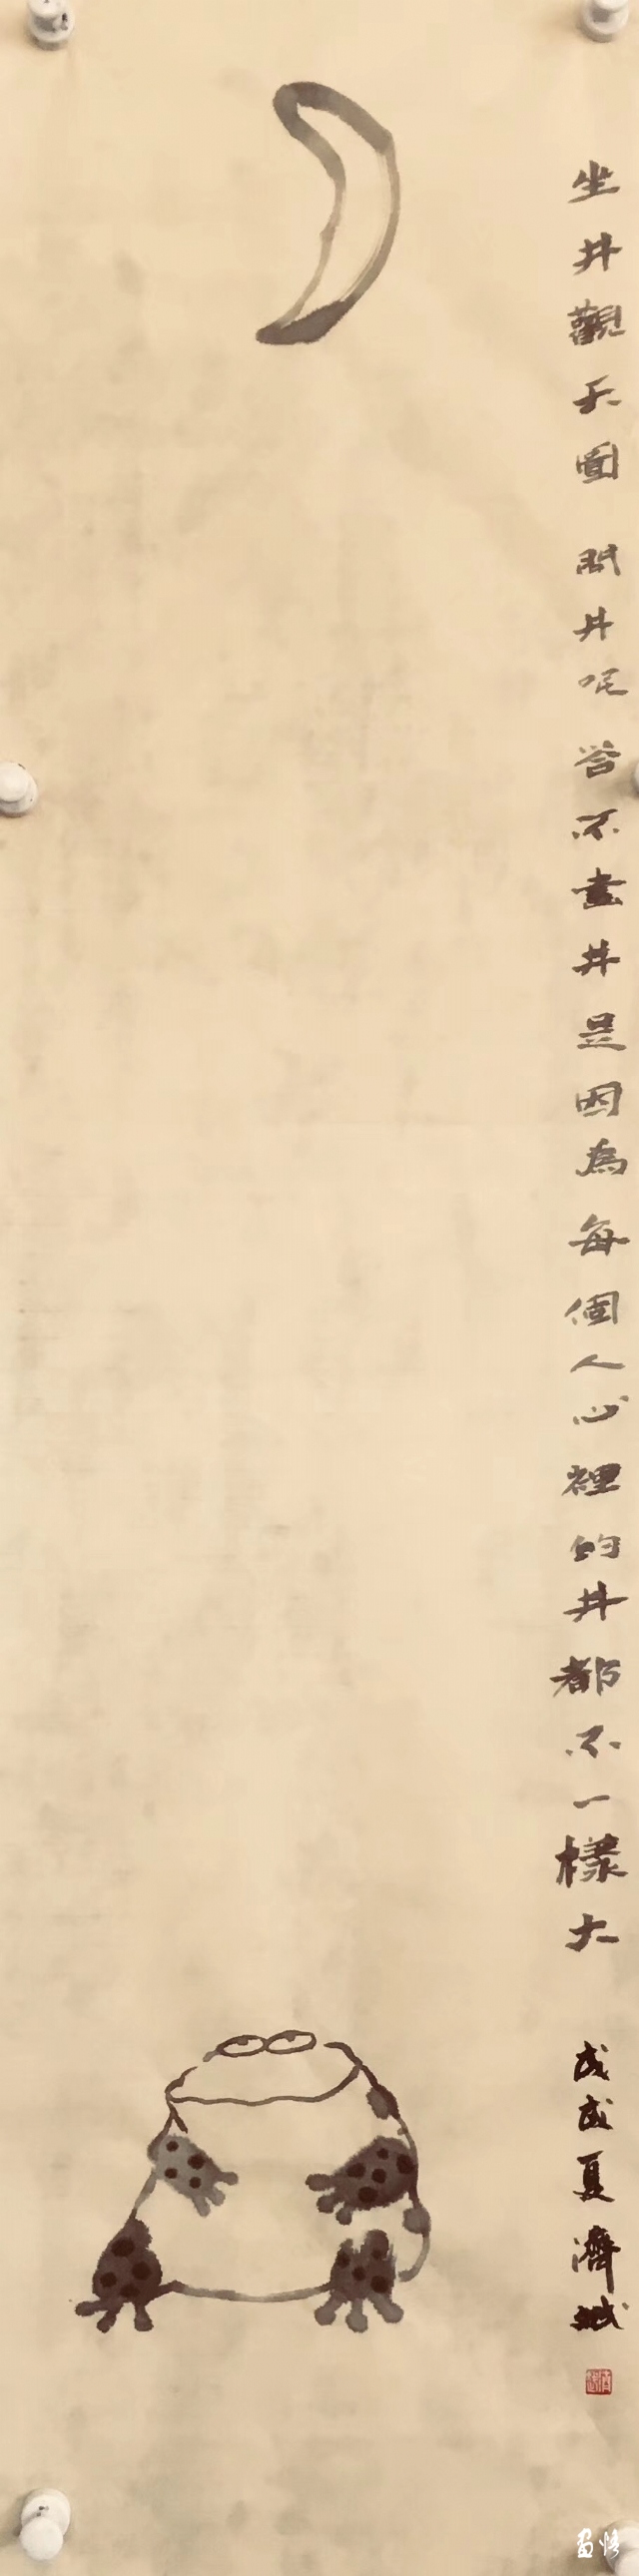 坐井觀天圖 問井呢 答不畫井是因為每個人心裡的井都不一樣大 戊戌夏濟城